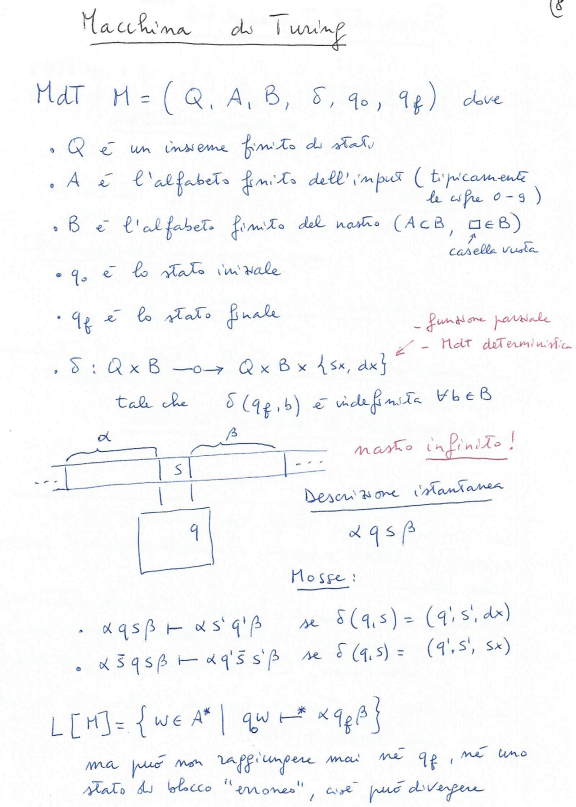 (8
Macchina di Turing
MdT M = ( Q, A, B, δ, q₀, q_f ) dove
• Q è un insieme finito di stati
• A è l'alfabeto finito dell'input ( tipicamente
le cifre 0-9 )
• B è l'alfabeto finito del nastro (A⊂B, □∈B)
casella vuota
• q₀ è lo stato iniziale
• q_f è lo stato finale
- funzione parziale
- MdT deterministica
• δ : Q×B —o→ Q×B×{sx, dx}
tale che δ(q_f, b) è indefinita ∀b∈B
α β
nastro infinito!
... s ...
Descrizione istantanea
q
α q s β
Mosse:
• α q s β ⊢ α s' q' β se δ(q,s) = (q', s', dx)
• α s̄ q s β ⊢ α q' s̄ s' β se δ(q,s) = (q', s', sx)
L[M] = { w ∈ A* | q₀w ⊢* α q_f β }
ma può non raggiungere mai né q_f, né uno
stato di blocco "erroneo", cioè può divergere